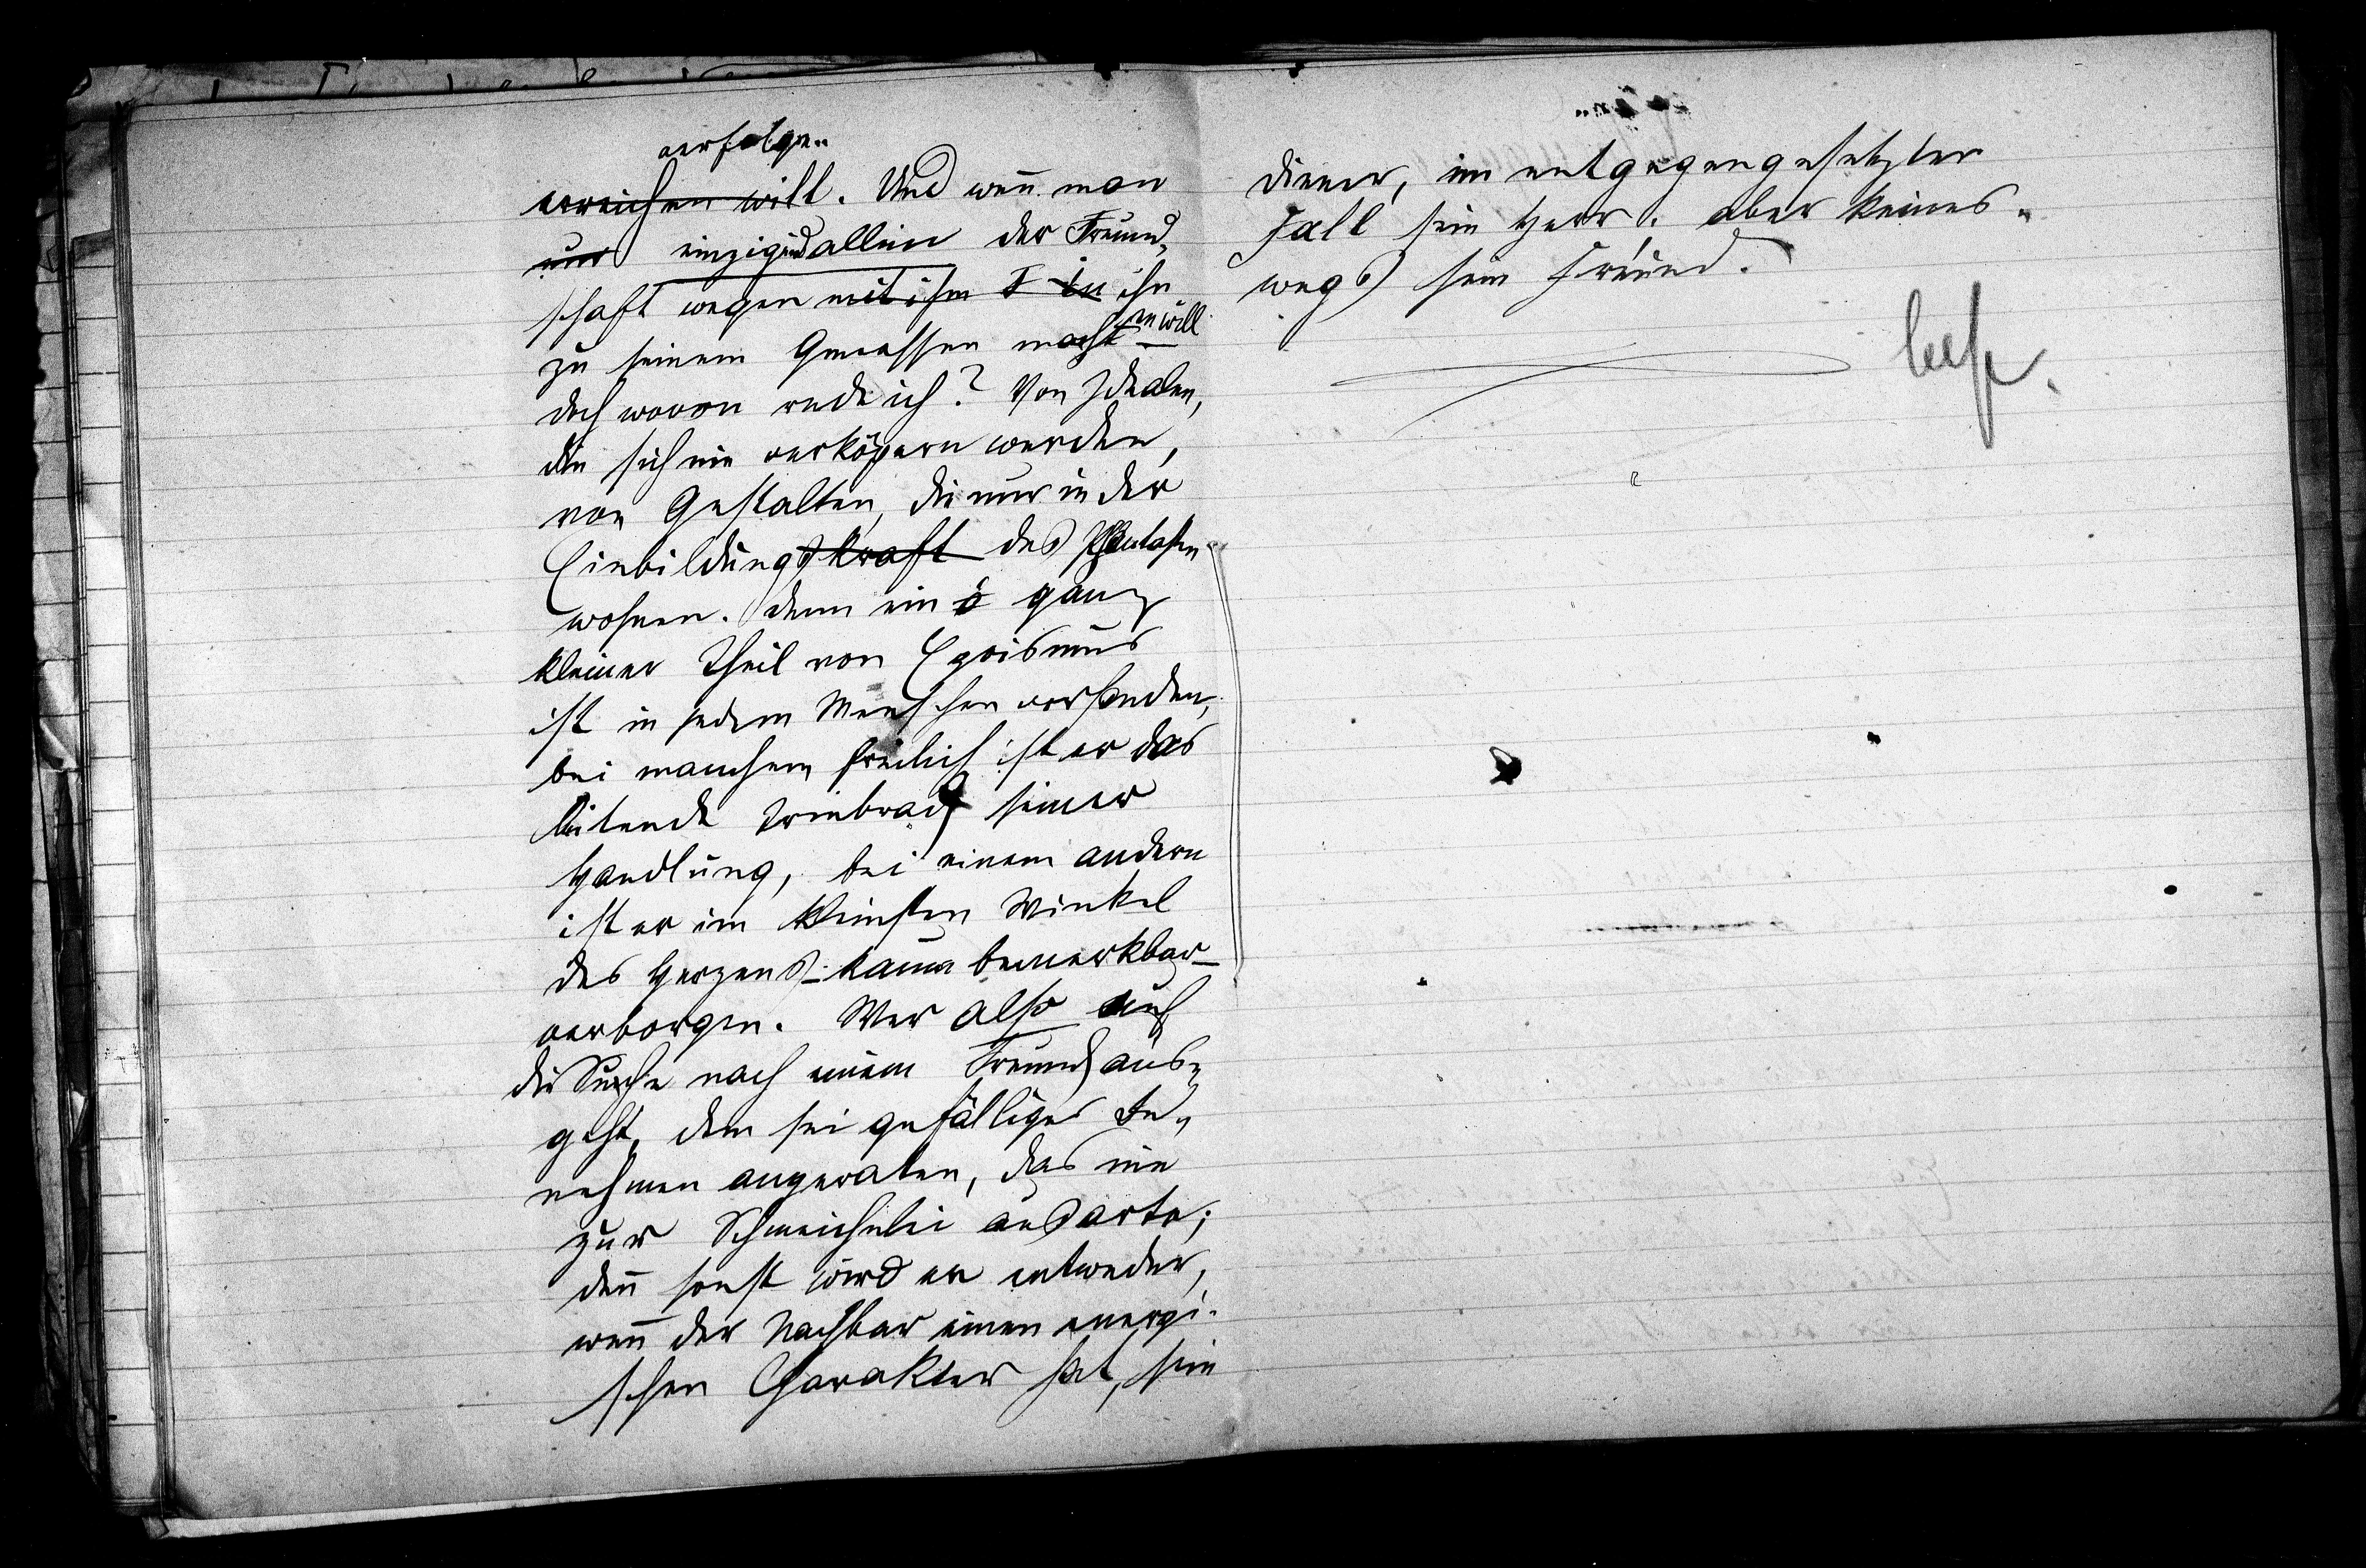 verfolgen
erreichen will. Und weñ man
nur einzig und allein der Freund-
schaft wegen mit ihm F in ihn
zu seinem Genossen macht en will
doch wovon rede ich? Von Idealen,
die sich nie verköpern werden,
von Gestalten, die nur in der
Einbildungskraft des Phantasten
wohnen. Denn ein ganz
kleiner Theil von Egoismus
ist in jedem Menschen vorhanden,
bei manchem freilich ist er das
leitende Triebrad seiner
Handlung, bei einem andern
ist er im kleinsten Winkel
des Herzens - kaum bemerkbar -
verborgen. Wer also auf
die Suche nach einem Freund aus-
geht, dem sei gefälliges Be-
nehmen angeraten, das nie
zur Schmeichelei ausarte;
deñ sonst wird er entweder,
weñ der Nachbar einen energi-
schen Charakter hat, sein
Diener, im entgegengesetzten
Fall sein Herr, aber keines-
wegs sein Freund.